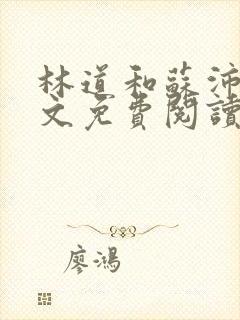 林道和蘇沛
文免費閱讀
廖鴻